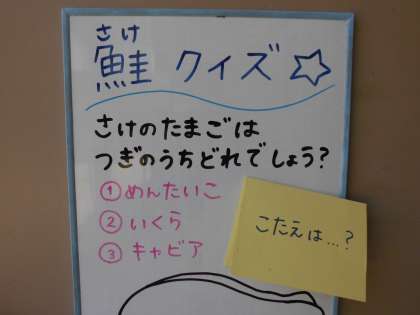 さけ
鮭 クイズ☆
さけのたまごは
つぎのうちどれでしょう?
①めんたいこ
②いくら
③キャビア
こたえは…?